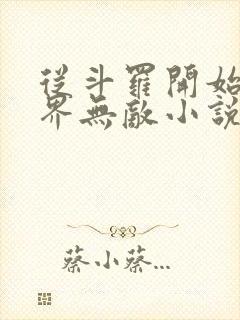 從斗羅開始
界無敵小說
蔡小蔡...